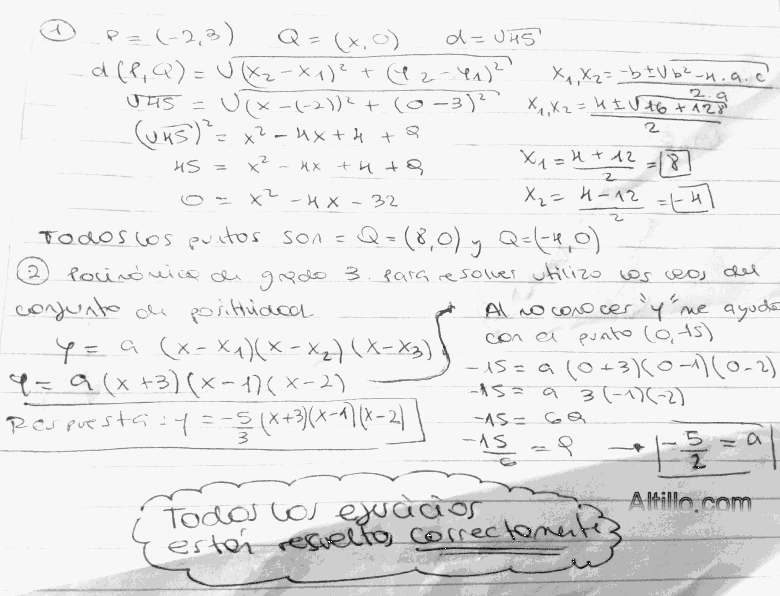 ① P = (-2,3) Q = (x,0) d = √45
d(P,Q) = √(x₂-x₁)² + (y₂-y₁)²
√45 = √(x-(-2))² + (0-3)²
(√45)² = x² - 4x + 4 + 9
45 = x² - 4x + 4 + 9
0 = x² - 4x - 32
x₁,x₂ = -b ± √b² - 4.a.c / 2.a
x₁,x₂ = 4 ± √16 + 128 / 2
x₁ = 4 + 12 / 2 = 8
x₂ = 4 - 12 / 2 = -4
Todos los puntos son = Q = (8,0) y Q = (-4,0)
② Polinómica de grado 3. Para resolver utilizo los ceros del
conjunto de positividad
y = a (x-x₁)(x-x₂)(x-x₃)
y = a (x+3)(x-1)(x-2)
Respuesta: y = -5/3 (x+3)(x-1)(x-2)
Al no conocer "y" me ayudo
con el punto (0,-15)
-15 = a (0+3)(0-1)(0-2)
-15 = a 3(-1)(-2)
-15 = 6a
-15/6 = a → -5/2 = a
Altillo.com
Todos los ejercicios
están resueltos correctamente